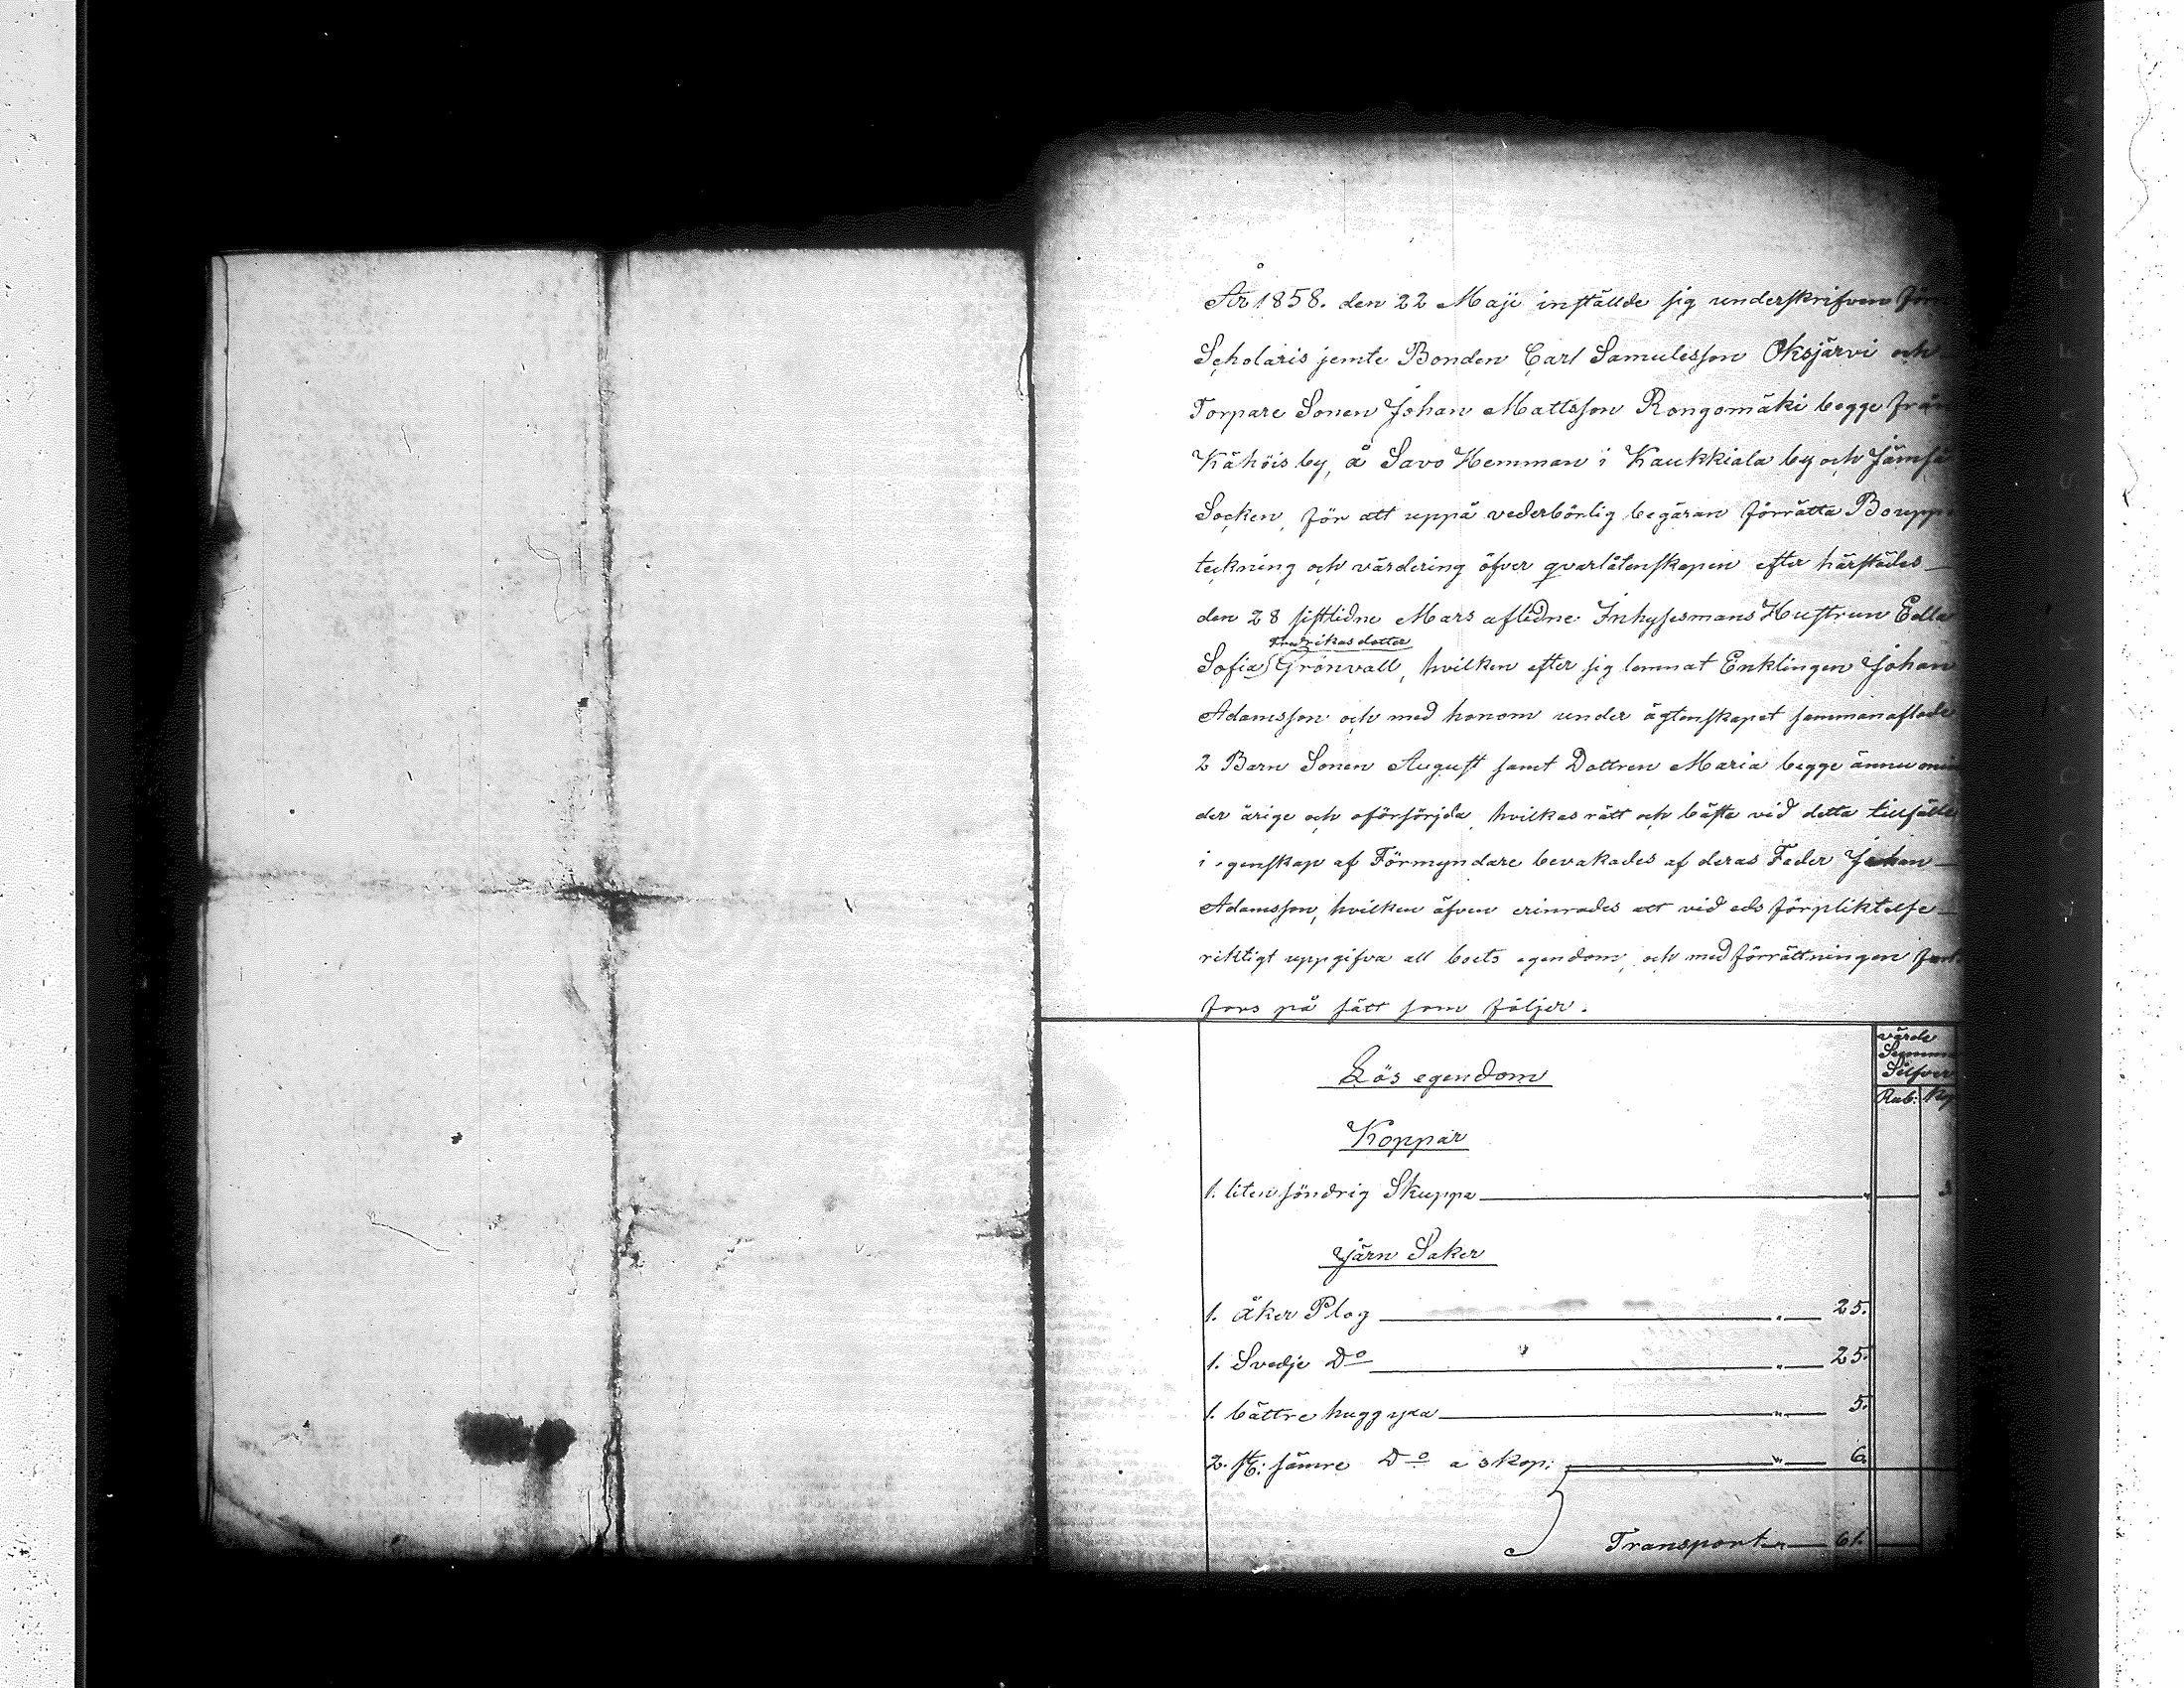 År 1858. den 22 Maji inställde sig underskrifven
Scholaris jemte Bonden Carl Samulisson Oksjärvi och
Torpare Sonen Johan Mattsson Rongomäki begge från
Kähöis by, å Savo Hemman i Kaukkiala by och Jämsä
Socken, för att uppå vederbörlig begäran förrätta Boupp
teckning och värdering öfver qvarlåtenskapen efter härstädes
den 28 sistlidne Mars aflidne Inhysesmans Hustrun Edla
Fredrikasdotter
Sofia Grönvall, hvilken efter sig lemnat Enklingen Johan
Adamsson och med honom under ägtenskapet sammanaflade
2 Barn Sonen August samt Dottren Maria begge ännu omin
der årige och oförsörjda, hvilkas rätt och bästa vid detta tillfälle
i egenskap af Förmyndare bevakades af deras Fader Johan
Adamsson, hvilken äfven erinrades att vid eds förpliktelse
riktigt uppgifva all boets egendom, och med förrättningen fort
fors på sätt som följer.
värde
Silfver
Rub: Kop
Lös egendom
Koppar
1. liten söndrig Skuppa
Järn Saker
1. åker Plog " 25.
1. Svedje Do " 25.
1. bättre huggyxa " 5.
2. st: sämre Do a 3 kop: " 6.
Transport " 61.
KODAK SAFETY